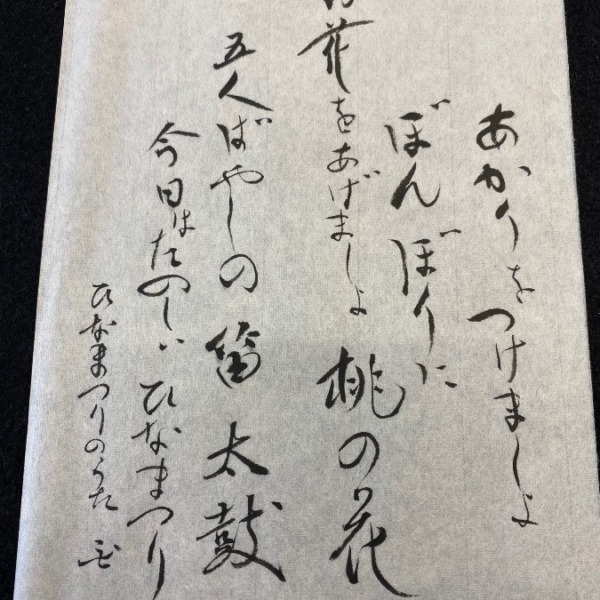 あかりをつけましよ
ぼんぼりに
お花をあげましよ 桃の花
五人ばやしの 笛太鼓
今日はたのしいひなまつり
ひなまつりのうた